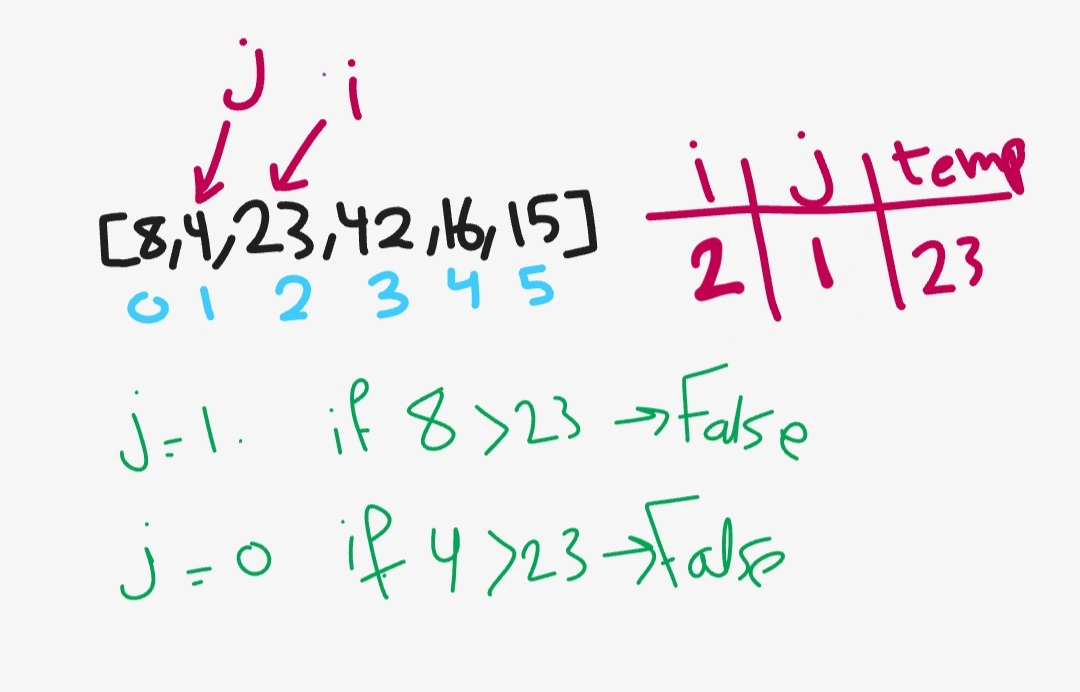 j i
[8,4,23,42,16,15]
0 1 2 3 4 5
i j temp
2 1 23
j=1. if 8>23 →False
j=0 if 4>23→False